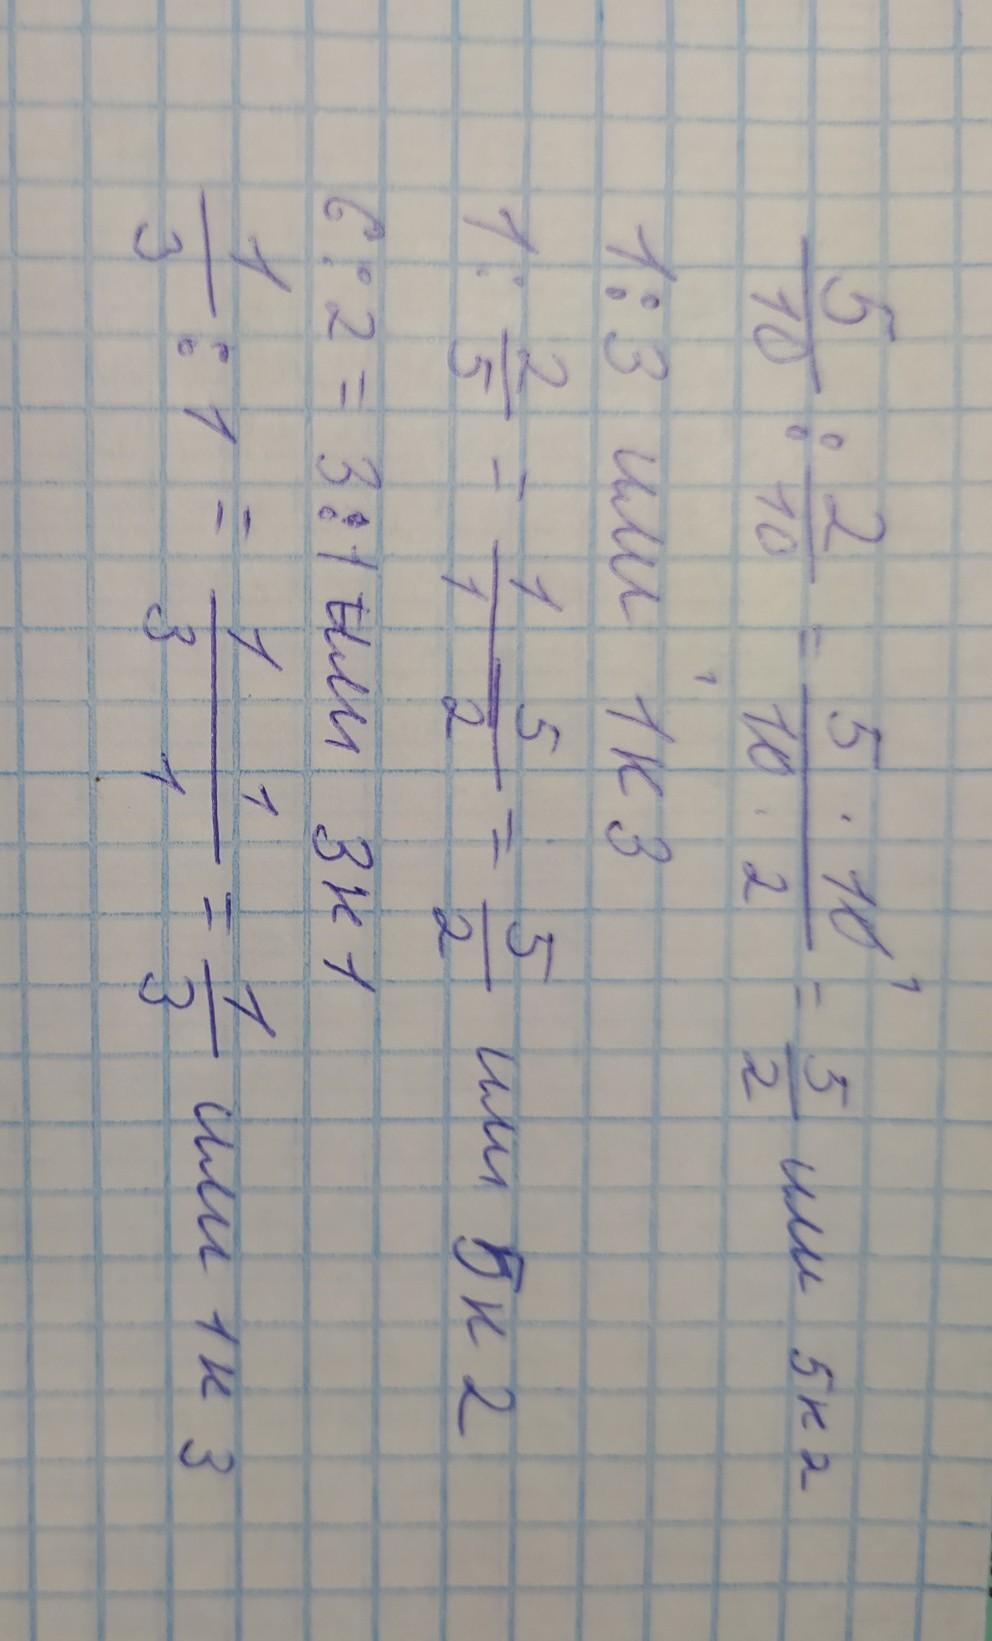 5/10 : 2/10 = 5 · 10/10 · 2 = 5/2 или 5 к 2
1 : 3 или 1 к 3
1 : 2/5 = 1 5/1 2 = 5/2 или 5 к 2
6 : 2 = 3 : 1 или 3 к 1
1/3 : 1 = 1 1/3 1 = 1/3 или 1 к 3